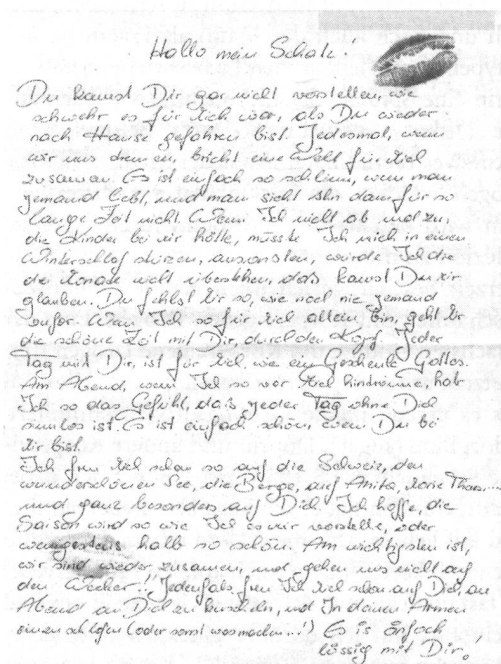 Hallo mein Schatz.
Du kannst Dir gar nicht vorstellen, wie
schwehr es für Mich war, als Du wieder
nach Hause gefahren bist. Jedesmal, wenn
wir uns trennen, bricht eine Welt für Mich
zusamman. Es ist einfach so schlimm, wenn man
jemand liebt, und man sieht Ihn dann für so
lange Zeit nicht. Wenn Ich nicht ab und zu,
die Kinder bei mir hätte, müsste Ich mich in einen
Winterschlaf stürzen, ansonsten, würde Ich die
drei Monate nicht überstehen, das kannst Du mir
glauben. Du fehlst Mir so, wie noch nie jemand
zufor. Wenn Ich so für Mich allein bin, geht Mir
die schöne Zeit mit Dir, durch den Kopf. Jeder
Tag mit Dir, ist für Mich, wie ein Geschenk Gottes.
Am Abend, wenn Ich so vor Mich hinträume, hab
Ich so das Gefühl, das jeder Tag ohne Dich
sinnlos ist. Es ist einfach schön, wenn Du bei
Mir bist.
Ich freu Mich schon so auf die Schweiz, den
wunderschönen See, die Berge, auf Anita,
und ganz besonders auf Dich. Ich hoffe, die
Saison wird so wie Ich es mir vorstelle, oder
wenigstens halb so schön. Am wichtigsten ist,
wir sind wieder zusamen, und gehen uns nicht auf
den Wecker!! Jedenfals freu Ich Mich schon auf Dich, am
Abend an Dich zu kuscheln, und In deinen Armen
einzuschlafen (oder sonst was machen...!) Es is einfach
lässig mit Dir.